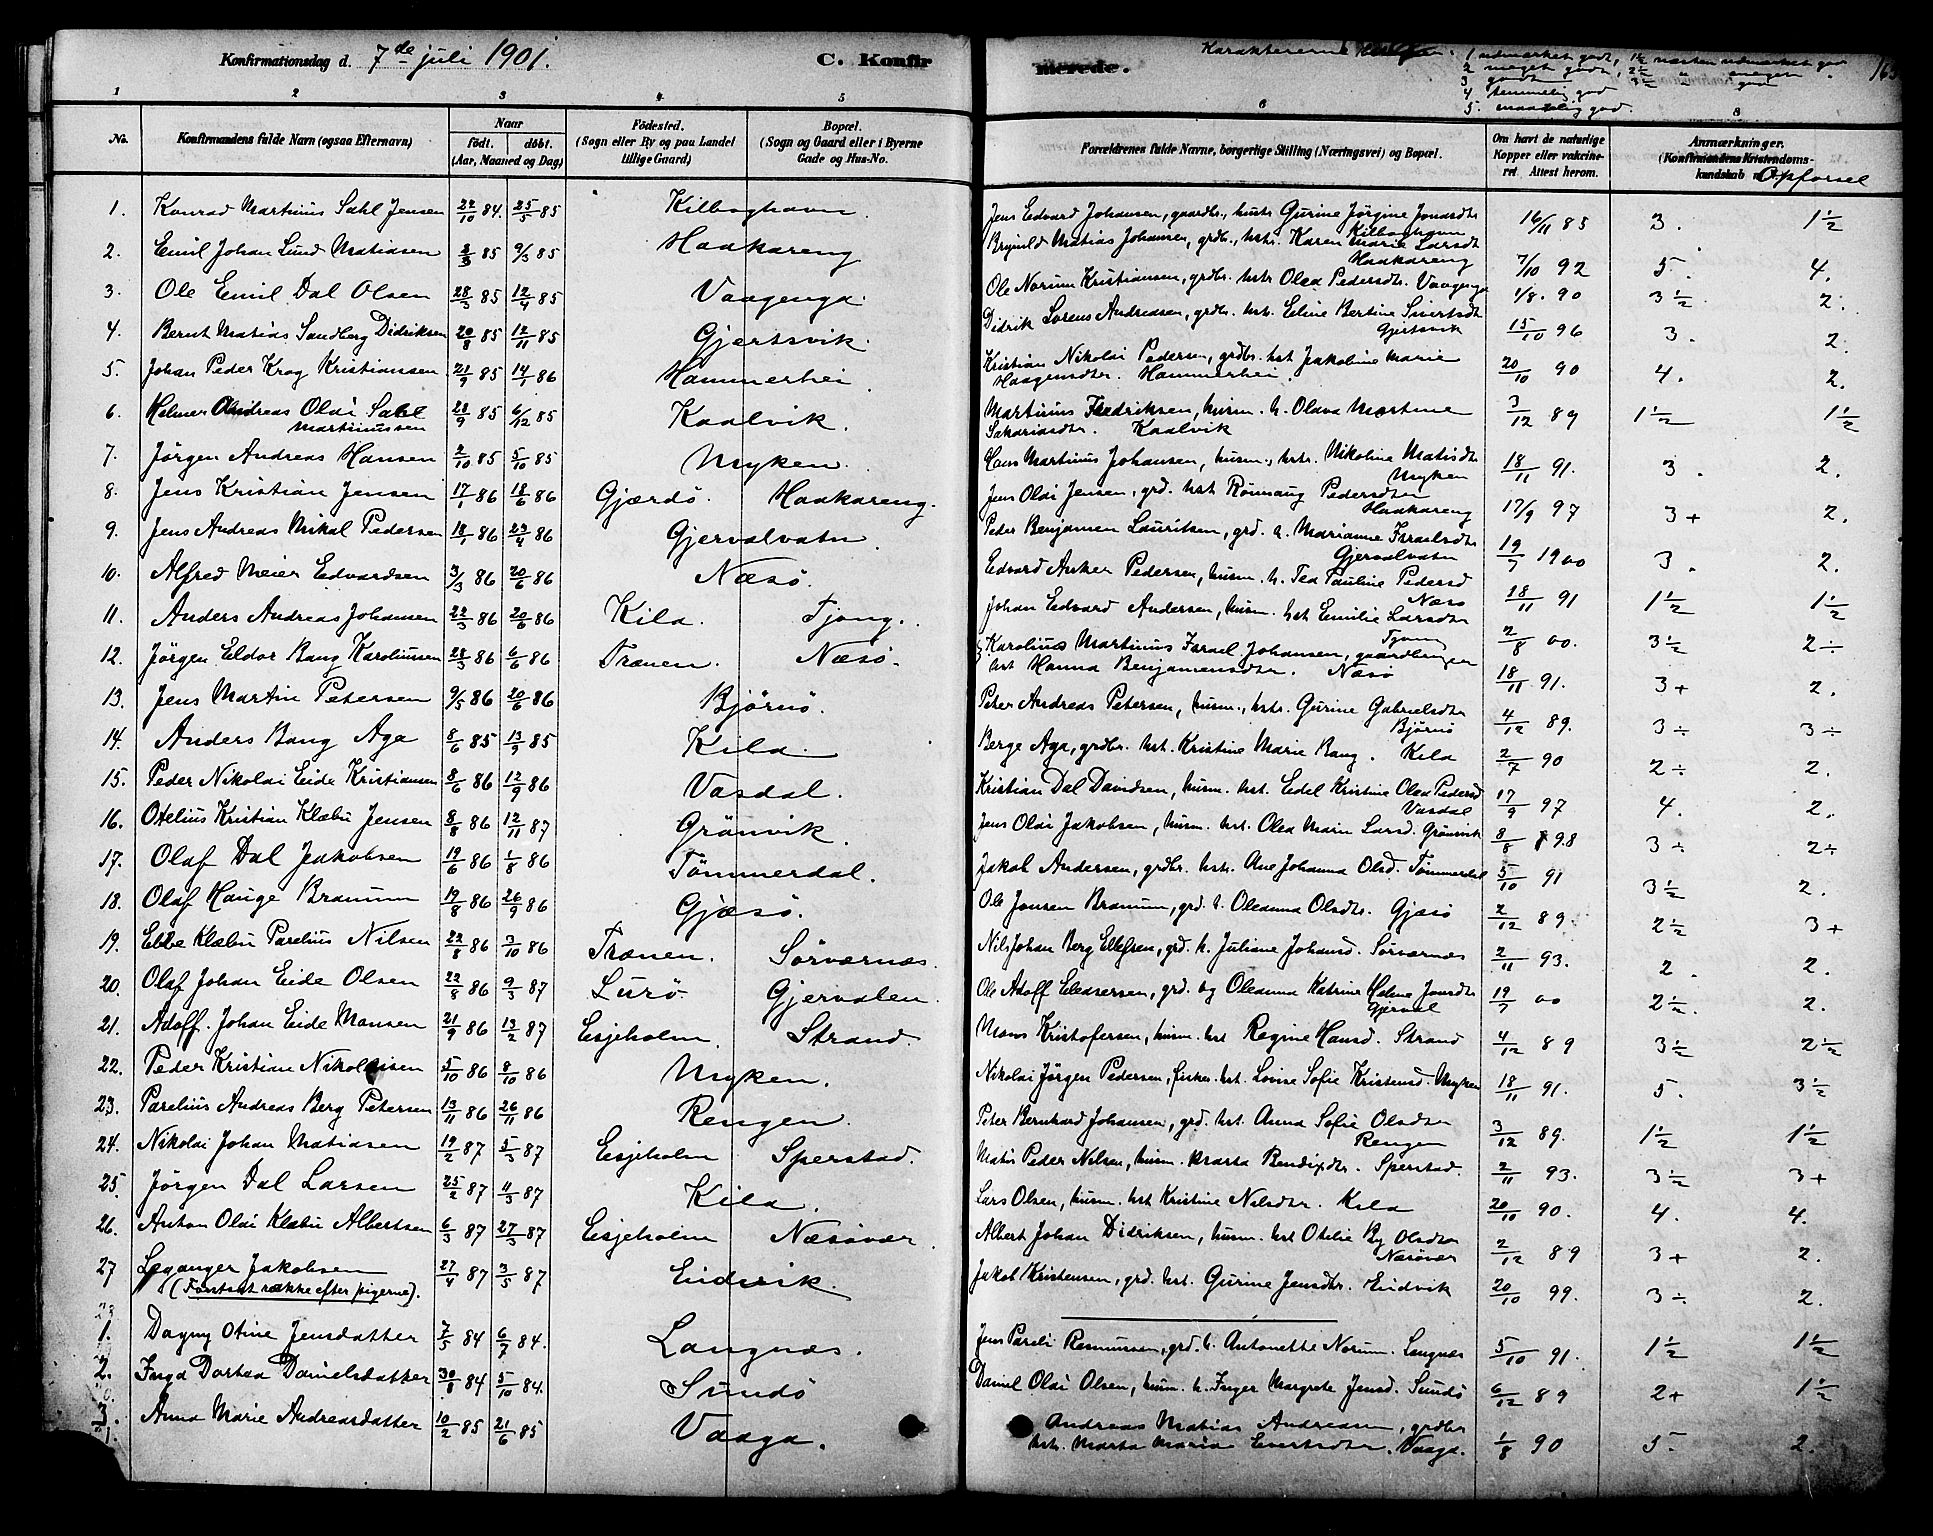 Konfirmationsdag d. 7de juli 1901. C. Konfirmerede. Karaktererne
1 udmærket godt, 1½ næsten udmærket godt
2 meget godt, 2½ " meget "
3 godt 3½ " god
4. temmelig god
5. maadelig god.
1 2 3 4 5 6 8
No. Konfirmandens fulde Navn (ogsaa Efternavn) Naar født. døbt. (Aar, Maaned og Dag) Fødested. (Sogn eller By og paa Landet tillige Gaard) Bopæl. (Sogn og Gaard eller i Byerne Gade og Hus-No.) Forældrenes fulde Navne, borgerlige Stilling (Næringsvei) og Bopæl. Om havt de naturlige Kopper eller vakcineret. Attest herom. Anmærkninger. (Konfirmandens Kristendomskundskab Opførsel
1. Konrad Martinus Sahl Jensen 22/10 84. 25/5 85 Kilboghavn Jens Edvard Johansen, gaardbr., hustr. Gurine Jørgine Jonasdtr Kilboghavn 16/11 85 3. 1½
2. Emil Johan Lund Matiasen 2/3 85 9/3 85 Haakareng Brynild Matias Johansen, grdbr., hstr. Karen Marie Larsdt Haakareng 7/10 92 5. 4.
3. Ole Emil Dal Olsen 28/3 85 12/4 85 Vaagenga Ole Norum Kristiansen, grdbr. hstr. Olea Pedersdtr. Vaagenga 1/8. 90 3½ 2.
4. Bernt Matias Sandberg Didriksen 20/8 85 12/11 85 Gjertsvik Didrik Lorens Andreasen, grdbr. hstr. Eline Bertine Sivertsdt Gjertsvik 15/10 96 3. 2.
5. Johan Peder Krog Kristiansen 21/9 85 14/1 86 Hammerhei. Kristian Nikolai Pedersen, grdbr. hst Jakobine Marie Haagensdtr. Hammerhei. 20/10 90 4. 2.
6. Helmer Andreas Olai Sahl Martinussen 28/9 85 6/12 85 Kaalvik. Martinus Fredriksen, husm. h. Olava Martine Sakariasdtr. Kaalvik 3/12 89 1½ 1½
7. Jørgen Andreas Hansen 2/10 85 5/10 85 Myken. Hans Martinus Johansen, husm., hstr. Nikoline Matisdt Myken 18/11 91. 3. 2.
8. Jens Kristian Jensen 17/1 86 18/6 86 Gjærdø. Haakareng. Jens Olai Jensen, grd. hst Rønnaug Pedersdtr Haakareng 17/9 97 3+ 2.
9. Jens Andreas Mikal Pedersen 18/1 86 24/4 86 Gjervalvatn. Peder Benjamen Lauritsen, grd. h. Marianne Israelsdtr Gjervalvatn 19/7 1900 3. 2.
10. Alfred Meier Edvardsen 3/3 86 20/6 86 Næsø. Edvard Anker Pedersen, husm. h. Tea Pauline Pedersd Næsø 18/11 91 1½ 1½
11. Anders Andreas Johansen 22/3 86 20/6 86 Kila. Tjong. Johan Edvard Andersen, husm. hst Emilie Larsdtr Tjong 2/8 00. 3½ 2÷
12. Jørgen Eldor Bang Karoliussen 28/3 86 6/6 86 Trænen. Næsø. Karolius Martinus Israel Johansen, gaardbruger hst Hanna Benjamensdtr. Næsø 18/11 91. 3+ 2.
13. Jens Martin Petersen 9/5 86 20/6 86 Bjørnø. Peter Andreas Petersen, husm., hstr. Gurine Gabrielsdtr Bjørnø 4/12 89. 3÷ 3÷
14. Anders Bang Aga 8/6 85 13/9 85 Kila. Berge Aga, grdbr. hst. Kristine Marie Bang. Kila 2/7 90 2÷ 2.
15. Peder Nikolai Eide Kristiansen 8/6 86 12/9 86 Vasdal. Kristian Dal Davidsen, husm. hst. Edel Kristine Olea Pedersd Vasdal 17/9 97 4. 2.
16. Otelius Kristian Klæbu Jensen 8/8 86 12/11 87 Grönvik. Jens Olai Jakobsen, husm. hst. Olea Marie Larsd. Grönvik 8/8 98 3÷ 2÷
17. Olaf Dal Jakobsen 19/6 86 1/8 86 Tømmerdal. Jakob Andersen, grdbr. hstr. Ane Johanna Olsd. Tømmerdal 5/10 91 3½ 2.
18. Olaf Hauge Bramum 19/8 86 26/9 86 Gjæsø. Ole Jonsen Bramum, grd. h. Oleanna Olsdtr. Gjæsø 2/12 89. 2½ 3+
19. Ebbe Klæbu Parelius Nilsen 22/8 86 3/10 86 Trænen. Sørværnæs. Nils Johan Berg Ellefsen, grd. h. Juliane Johansd. Sørværnæs 2/11 93. 2. 2.
20. Olaf Johan Eide Olsen 22/8 86 9/3 87 Lurø. Gjervalen. Ole Adolf Eliasersen, grd. og Oleanna Katrine Helene Jonsdtr Gjerval 19/7 00 2½. 2.
21. Adolf. Johan Eide Monsen 21/9 86 13/2 87 Esjeholm. Strand Mons Kristofersen, husm. hst Regine Hansd. Strand 4/12 89 3½ 2½
22. Peder Kristian Nikolaisen 5/10 86 8/10 86 Myken. Nikolai Jørgen Pedersen, fisker. hst. Lovise Sofie Kristensd. Myken 18/11 91. 5. 3½
23. Parelius Andreas Berg Petersen 13/11 86 26/11 86 Rengen. Peter Bernhard Johansen, grd. hst Anna Sofie Olsdtr Rengen 3/12 89. 1½ 1½
24. Nikolai Johan Matiasen 19/2 87 5/3 87 Esjeholm Sperstad. Matis Peder Nilsen, husm. Marta Bendixdtr. Sperstad. 2/11 93. 3½ 3+
25. Jørgen Dal Larsen 25/2 87 4/3 87 Kila. Lars Olsen, husm. hst Kristine Nilsdtr. Kila 20/10 90. 4. 4.
26. Anton Olai Klæbu Albertsen 6/3 87 27/3 87 Esjeholm Næsøvær. Albert Johan Didriksen, husm. hst Otelie By Olsdtr Næsøvær 2/12 89 3+ 2.
27 Leganger Jakobsen 27/4 87 3/5 87 Eidvik. Jakob Kristensen, grd. hst. Gurine Jensdtr. Eidvik 20/10 99. 3÷ 2.
(Fortsat række efter pigerne).
1. Dagny Otine Jensdatter 7/5 84 6/7 84. Langnæs. Jens Pareli Rasmussen, grd. h. Antonette Norum. Langnæs 5/10 91. 1½ 1½
2. Inga Dortea Danielsdatter 30/8 84 5/10 84. Sundø Daniel Olai Olsen, husm. h. Inger Margrete Jensd. Sundø 6/12 89 2+ 1½
3. Anna Marie Andreasdatter 10/2 85 21/6 85 Vaaga. Andreas Matias Andreasen, grdbr hstr. Marta Maria Evertsdtr. Vaaga. 1/8 90 5. 2.